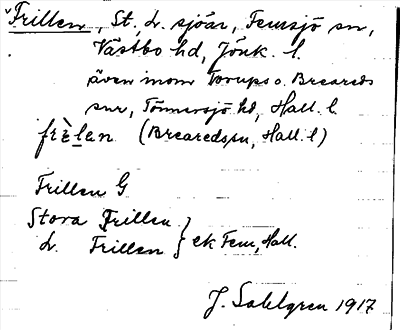 Frillen, St., L. sjöar, Femsjö sn,
Västbo hd, Jönk. l.
även inom Torups o. Breareds
snr, Tönnersjö hd, Hall. l.
frè̀lan (Brearedssn, Hall. l)
Frillen G
Stora Frillen
L. Frillen } ek Fem, Hall.
J. Sahlgren 1917